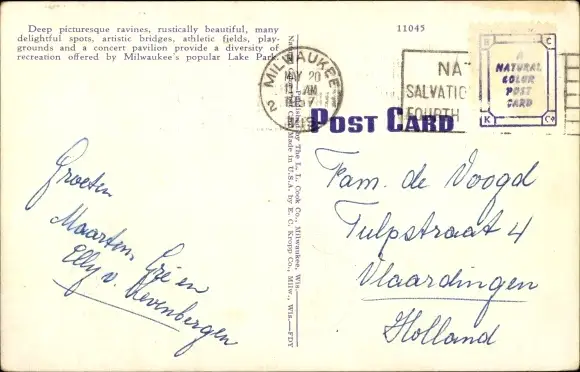 Deep picturesque ravines, rustically beautiful, many
delightful spots, artistic bridges, athletic fields, play-
grounds and a concert pavilion provide a diversity of
recreation offered by Milwaukee's popular Lake Park.
11045
MILWAUKEE
MAY 20
2
NA
SALVATIO
FOURTH
A
NATURAL
COLOR
POST
CARD
K
POST CARD
Published by The L. L. Cook Co., Milwaukee, Wis.
Made in U.S.A. by E. C. Kropp Co., Milw., Wis.—FDY
Groeten
Maarten,
Elly v.
Fam. de Voogd
Tulpstraat 4
Vlaardingen
Holland